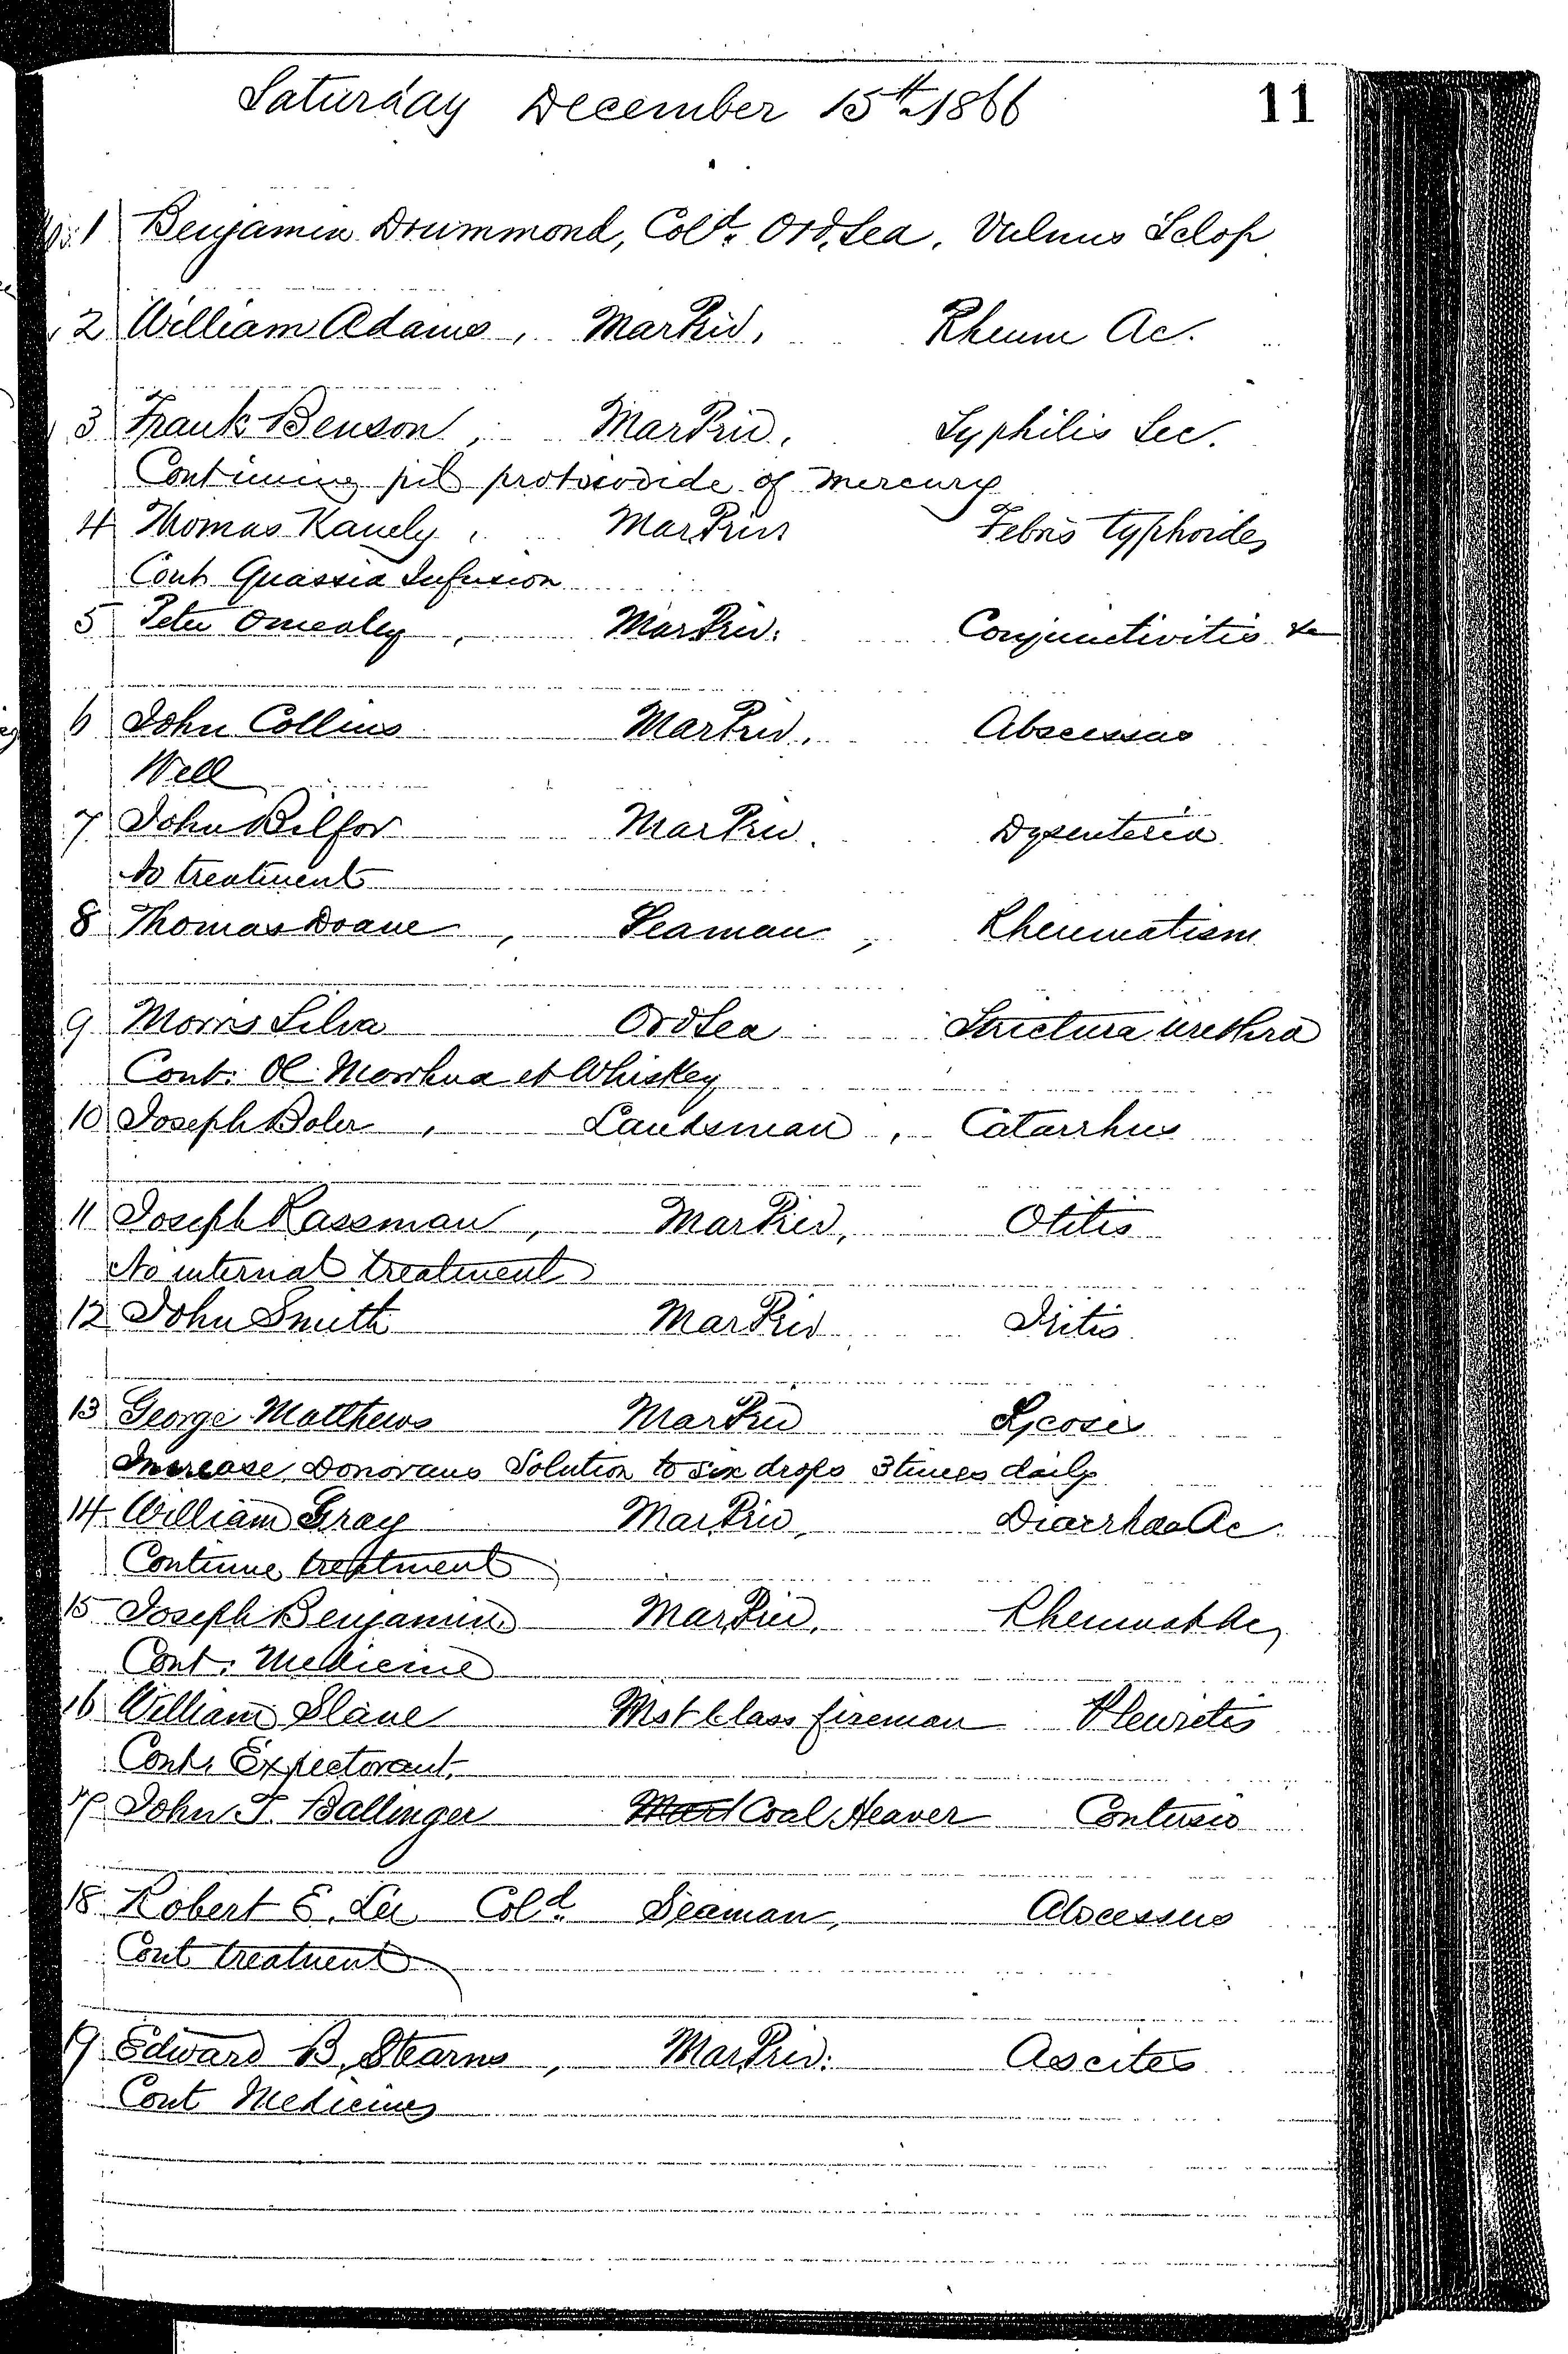 Saturday December 15th 1866
11
No. 1 Benjamin Drummond, Cold. Ord. Sea. Vulnus Sclop
2 William Adams, Mar Priv, Rheum Ac.
3 Frank Benson, Mar Priv. Syphilis Sec.
Continuing pil protoiodide of mercury
4 Thomas Kanely, Mar Priv Febris typhoides
Cont Quassia Infusion
5 Peter Omealey, Mar Priv. Conjunctivitis &c
6 John Collins Mar Priv. Abscessus
Well
7 John Bilfor Mar Priv. Dysenteria
No treatment
8 Thomas Doane, Seaman, Rheumatism
9 Morris Silva Ord Sea Strictura urethra
Cont. Ol. Morrhua et Whiskey
10 Joseph Boler, Landsman, Catarrhus
11 Joseph Rassman, Mar Priv, Otitis
No internal treatment
12 John Smith Mar Priv Iritis
13 George Matthews Mar Priv Sycosis
Increase Donovans Solution to six drops 3 times daily
14 William Gray Mar Priv, Diarrhœa Ac.
Continue treatment
15 Joseph Benjamin Mar Priv. Rheumat Ac,
Cont. Medicine
16 William Slane 1st Class fireman Pleuritis
Cont. Expectorant.
17 John T. Ballinger Coal Heaver Contusio
18 Robert E. Lee Cold. Seaman, Abscessus
Cont treatment
19 Edward B. Stearns, Mar Priv. Ascites
Cont Medicines